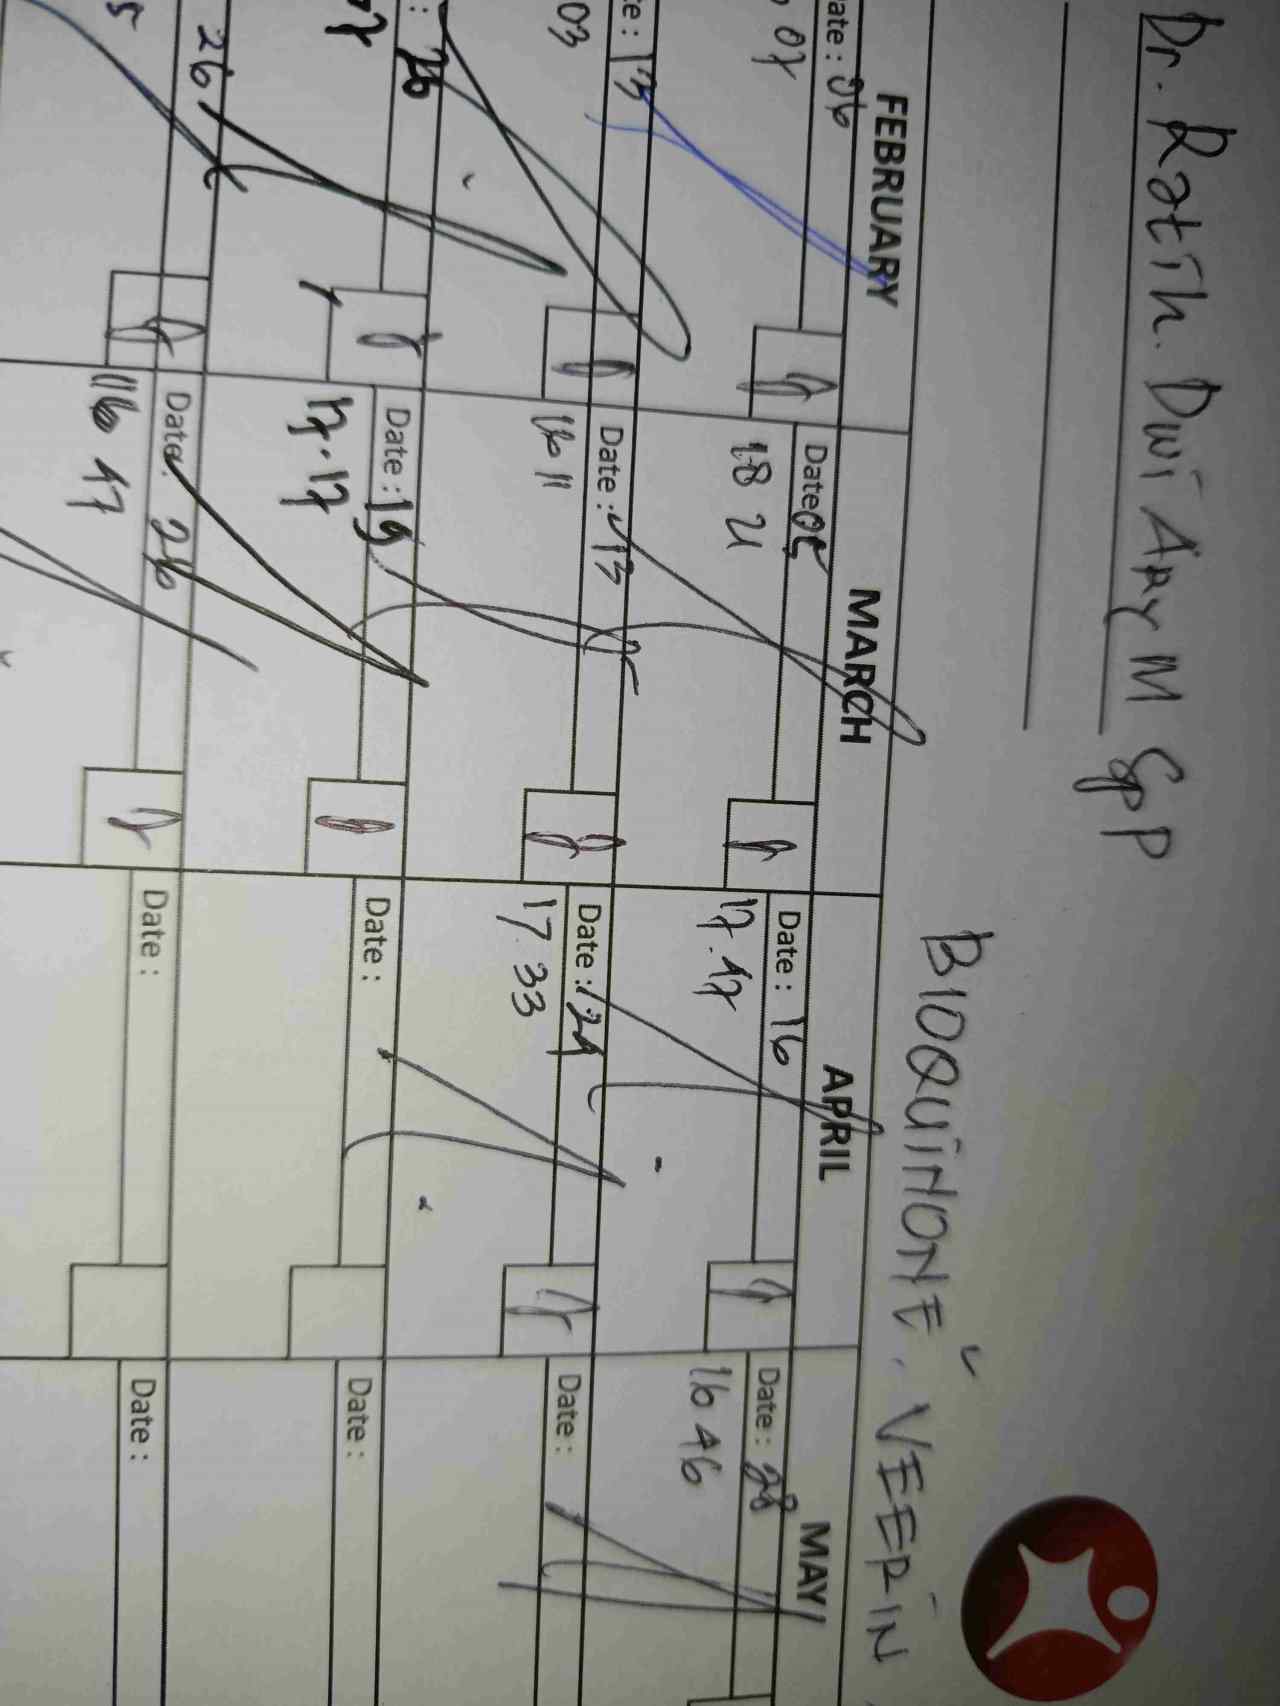 Dr. Ratih. Dwi Ary M Sp P
BIOQUINONE, VEEPIN
FEBRUARY MARCH APRIL MAY
Date : 06 Date : 05 Date : 16 Date : 28
07 18 21 17.47 16 46
te : 13 Date : 13 Date : 24 Date :
03 16 11 17.33
: 26 Date : 19 Date : Date :
17.17
26 Date : 26 Date : Date :
16 47